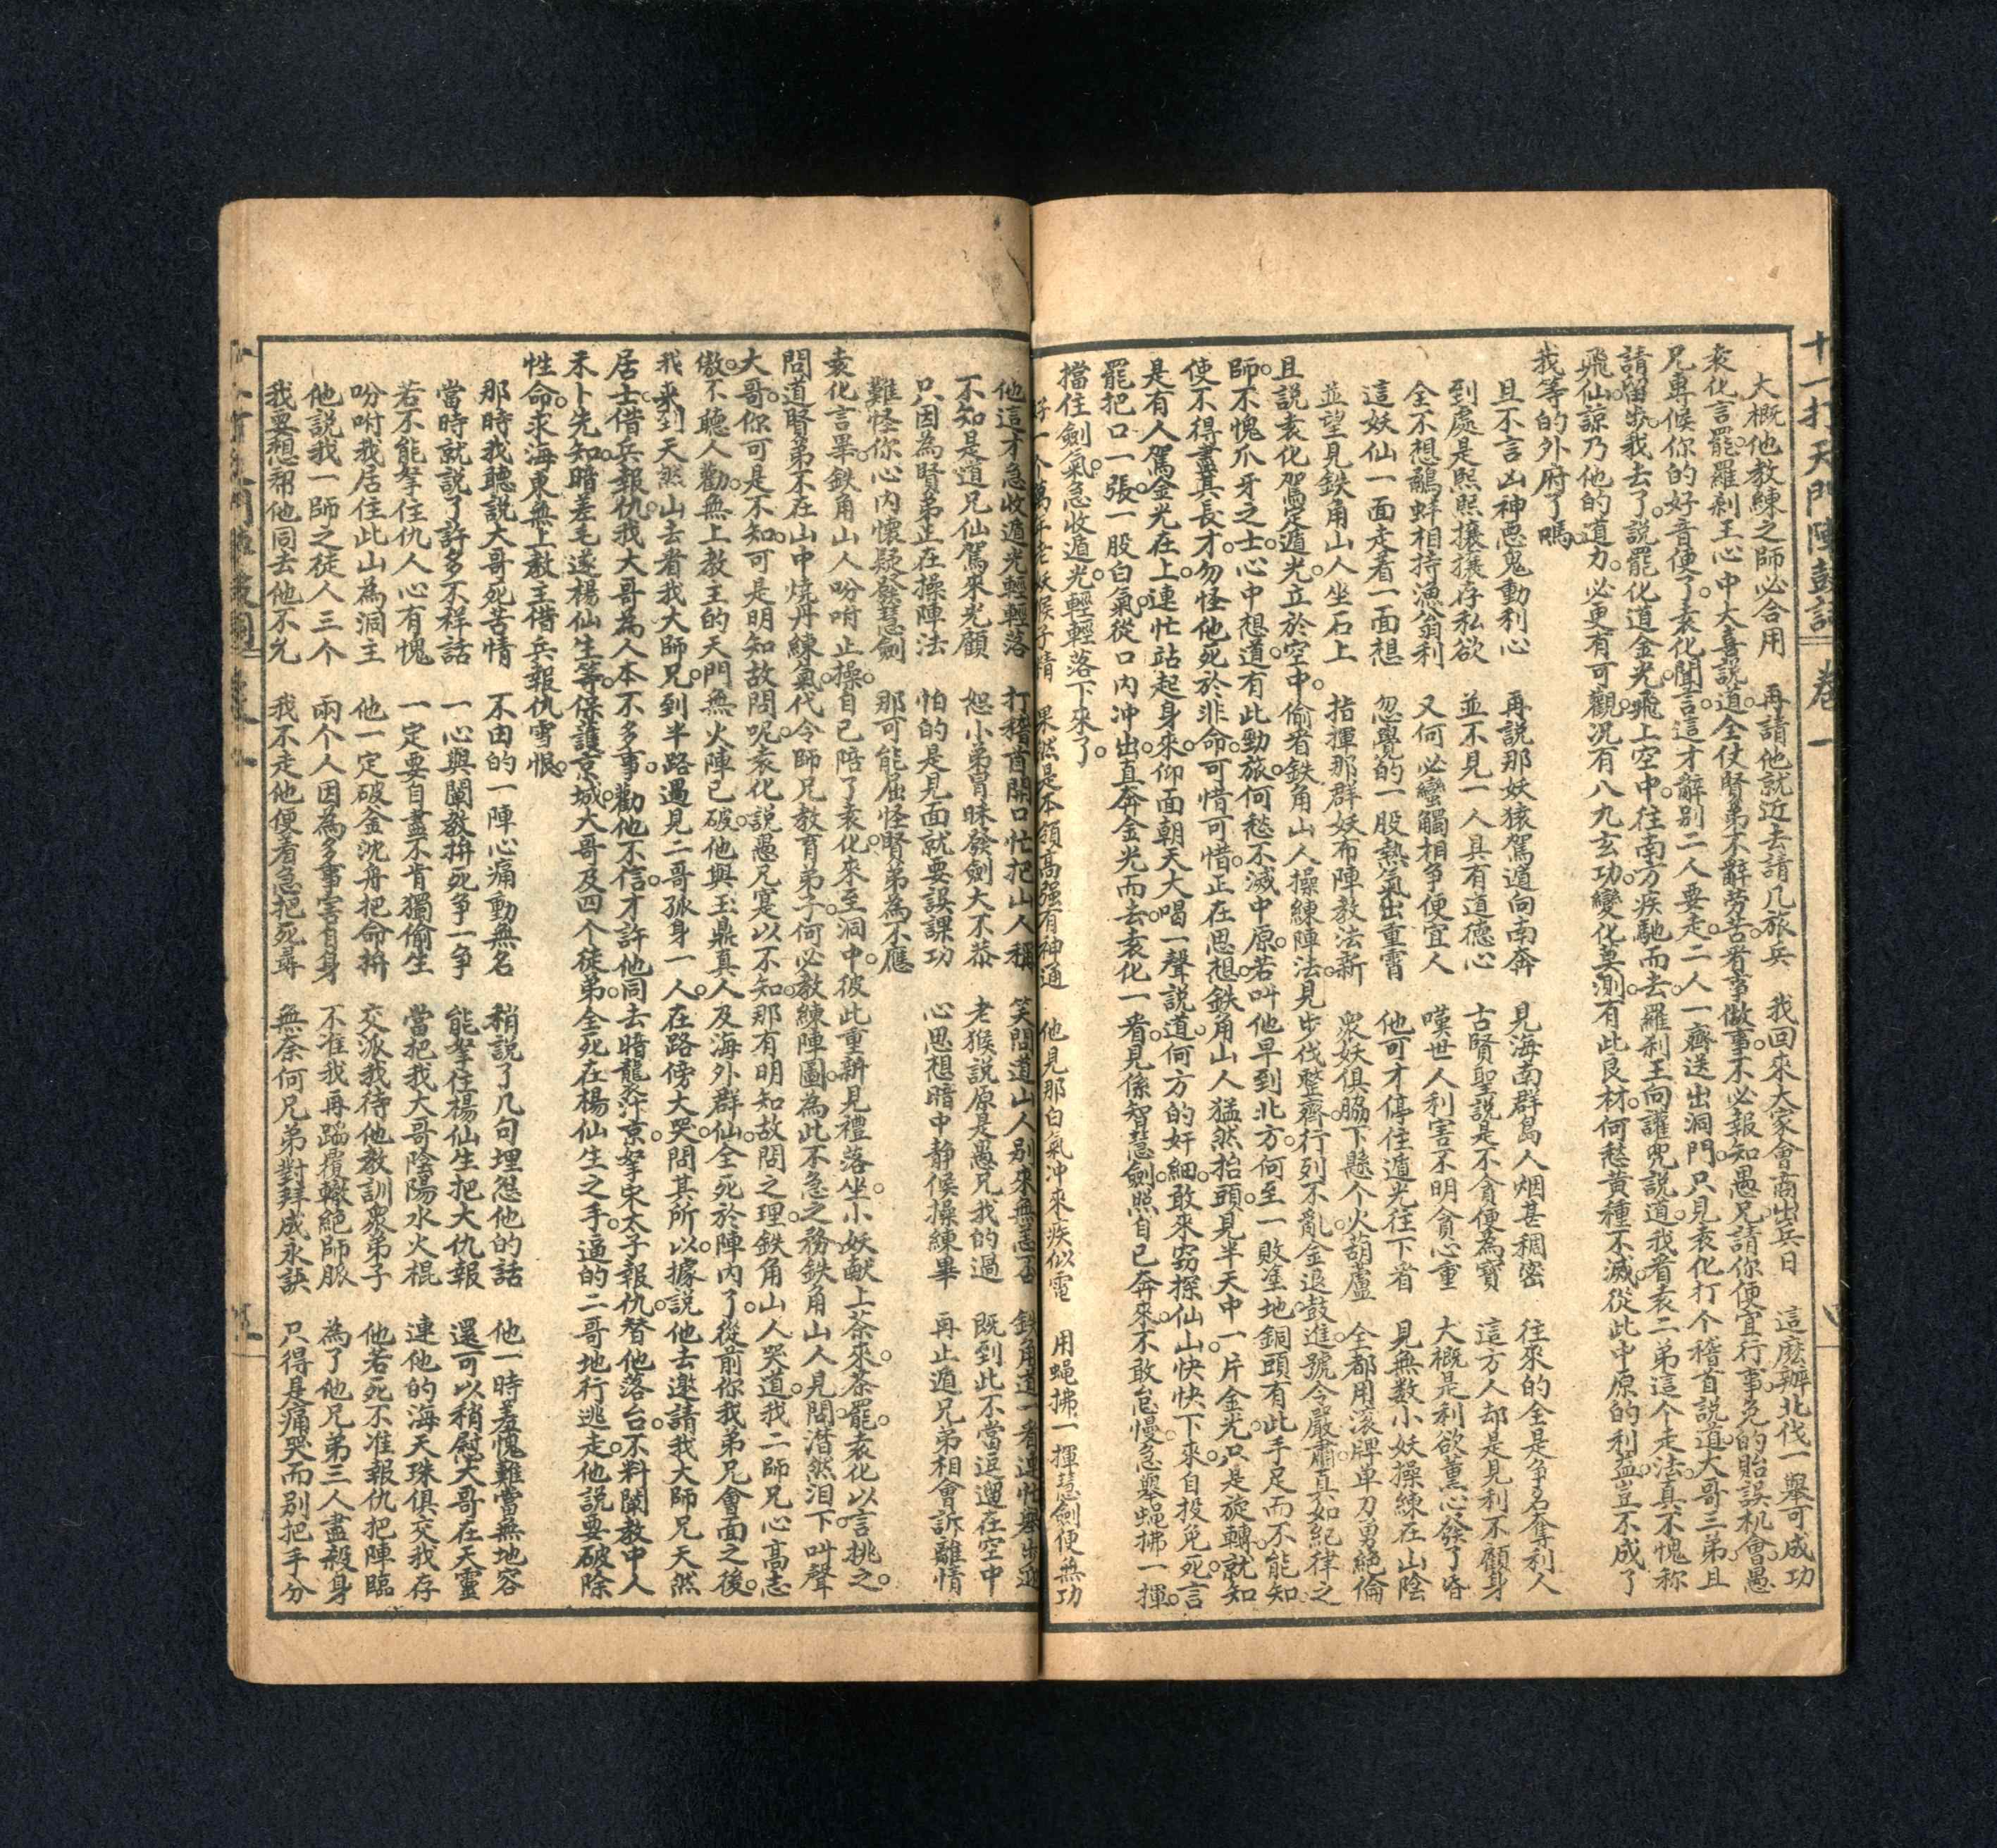 十一打天門陣鼓詞 卷一
大概他教練之師必合用 再請他就近去請几旅兵 我回來大家會商出兵日 這麽辦北伐一舉可成功
袁化言罷羅剎王心中大喜說道全仗賢弟不辭勞苦看事做事不必報知愚兄請你便宜行事免的貽誤机會愚
兄專候你的好音便了袁化聞言這才辭別二人要走二人一齊送出洞門只見袁化打个稽首說道大哥三弟且
請留步我去了說罷化道金光飛上空中往南方疾馳而去羅剎王向讙兜說道我看袁二弟這个走法真不愧称
飛仙諒乃他的道力必更有可觀況有八九玄功變化莫測有此良材何愁黃種不滅從此中原的利益豈不成了
我等的外府了嗎
且不言凶神惡鬼動利心 再說那妖猿駕遁向南奔 見海南群島人烟甚稠密 往來的全是爭名奪利人
到處是熙熙攘攘存私欲 並不見一人具有道德心 古賢聖說是不貪便為寶 這方人却是見利不顧身
全不想鷸蚌相持漁翁利 又何必蠻觸相爭便宜人 嘆世人利害不明貪心重 大概是利欲薰心發了昏
這妖仙一面走着一面想 忽覺的一股熱氣出重霄 他可才停住遁光往下看 見無数小妖操練在山陰
並望見鉄角山人坐石上 指揮那群妖布陣教法新 衆妖俱脇下懸个火葫蘆 全都用滚牌单刀勇絶倫
且說袁化駕定遁光立於空中偷看鉄角山人操練陣法見步伐整齊行列不亂金退鼓進號令嚴肅真如紀律之
師不愧爪牙之士心中想道有此勁旅何愁不滅中原若叫他早到北方何至一敗塗地銅頭有此手足而不能知
使不得盡其長才勿怪他死於非命可惜可惜正在思想鉄角山人猛然抬頭見半天中一片金光只是旋轉就知
是有人駕金光在上連忙站起身來仰面朝天大喝一聲說道何方的奸細敢來窃探仙山快快下來自投免死言
罷把口一張一股白氣從口内冲出直奔金光而去袁化一看見係智慧劍照自已奔來不敢怠慢急舉蝇拂一揮
擋住劍氣急收遁光輕輕落下來了
好一个萬年老妖猴子精 果然是本領高强有神通 他見那白氣冲來疾似電 用蝇拂一揮慧劍便無功
他這才急收遁光輕輕落 打稽首開口忙把山人稱 笑問道山人别來無恙否 鉄角道一看連忙舉步迎
不知是道兄仙駕來光顧 恕小弟冒昧發劍大不恭 老猴說原是愚兄我的過 既到此不當逗遛在空中
只因為賢弟正在操陣法 怕的是見面就要誤課功 心思想暗中静候操練畢 再止遁兄弟相會訴離情
難怪你心内懷疑發慧劍 那可能屈怪賢弟為不應
袁化言畢鉄角山人吩咐止操自已陪了袁化來至洞中彼此重新見禮落坐小妖献上茶來茶罷袁化以言挑之
問道賢弟不在山中燒丹練氣代令師兄教育弟子何必教練陣圖為此不急之務鉄角山人見問潜然泪下叫聲
大哥你可是不知可是明知故問呢袁化說愚兄寔以不知那有明知故問之理鉄角山人哭道我二師兄心高志
傲不聽人勸無上教主的天門無火陣已破他與玉鼎真人及海外群仙全死於陣内了從前你我弟兄會面之後
我来到天然山去看我大師兄到半路遇見二哥孤身一人在路傍大哭問其所以據說他去邀請我大師兄天然
居士借兵報仇我大哥為人本不多事勸他不信才許他同去暗龍斧汴京拏宋太子報仇替他落台不料闡教中人
未卜先知暗差毛遂楊仙生等保護京城大哥及四个徒弟全死在楊仙生之手逼的二哥地行逃走他說要破除
性命求海東無上教主借兵報仇雪恨
那時我聽說大哥死苦情 不由的一陣心痛動無名 稍說了几句埋怨他的話 他一時羞愧難當無地容
當時就說了許多不祥話 一心與闡教拚死爭一爭 能拏住楊仙生把大仇報 還可以稍慰大哥在天靈
若不能拏住仇人心有愧 一定要自盡不肯獨偷生 當把我大哥陰陽水火棍 連他的海天珠俱交我存
吩咐我居住此山為洞主 他一定破金沈舟把命拚 交派我待他教訓衆弟子 他若死不准報仇把陣臨
他說我一師之徒人三个 兩个人因為多事害自身 不准我再蹈覆轍絶師脈 為了他兄弟三人盡殺身
我要想帮他同去他不允 我不走他便着急把死尋 無奈何兄弟對拜成永訣 只得是痛哭而别把手分